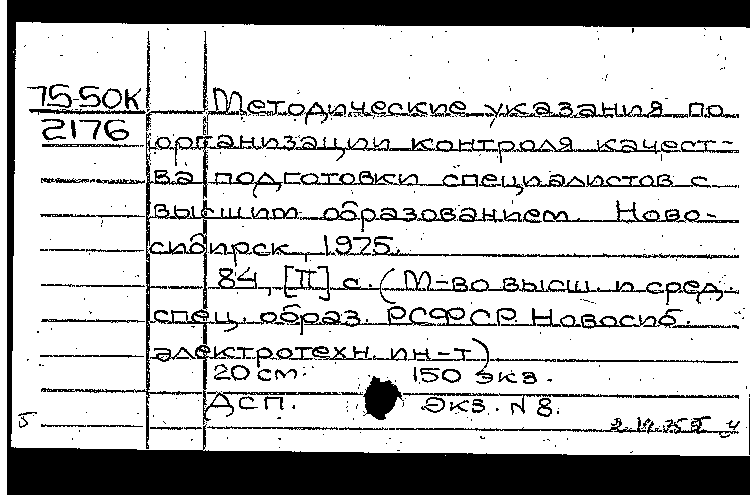 75-50К
2176
Методические указания по
организации контроля качест-
ва подготовки специалистов с
высшим образованием. Ново-
сибирск, 1975.
84, [II] с. (М-во высш. и сред.
спец. образ. РСФСР. Новосиб.
электротехн. ин-т)
20 см. 150 экз.
ДСП. Экз. N 8.